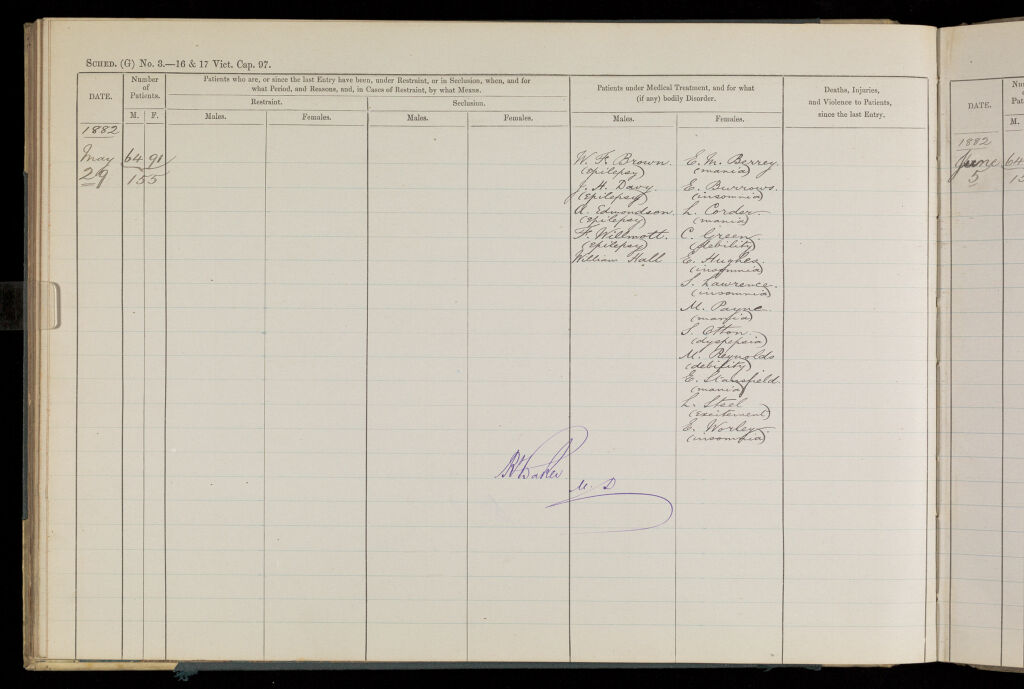 SCHED. (G) No. 3.—16 & 17 Vict. Cap. 97.
DATE.
Number of Patients.
M. F.
Patients who are, or since the last Entry have been, under Restraint, or in Seclusion, when, and for
what Period, and Reasons, and, in Cases of Restraint, by what Means.
Restraint.
Seclusion.
Males.
Females.
Males.
Females.
Patients under Medical Treatment, and for what
(if any) bodily Disorder.
Males.
Females.
Deaths, Injuries,
and Violence to Patients,
since the last Entry.
1882
May 64 91
29 155
W. F. Brown
(epilepsy)
J. H. Davy
(Epilepsy)
A. Edmondson
(epilepsy)
F. Willmott
(epilepsy)
William Hall
E. M. Berrey
(mania)
E. Burrows
(insomnia)
L. Corder
(mania)
C. Green
(debility)
E. Hughes
(insomnia)
S. Lawrence
(insomnia)
M. Payne
(mania)
S. Otton
(dyspepsia)
M. Reynolds
(debility)
E. Stansfield
(mania)
L. Steel
(excitement)
E. Worley
(insomnia)
Baker
M. D
DATE.
M.
1882
June 64
5